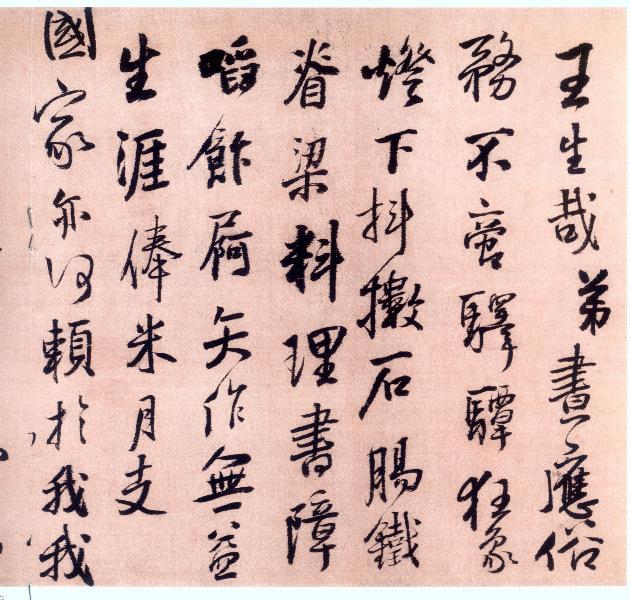 王生哉弟晝應俗
務不啻驛驔狂象
燈下抖擻石腸鐵
脊梁料理書障
嚼飯屙矢作無益
生涯俸米月支
國家亦何賴於我我